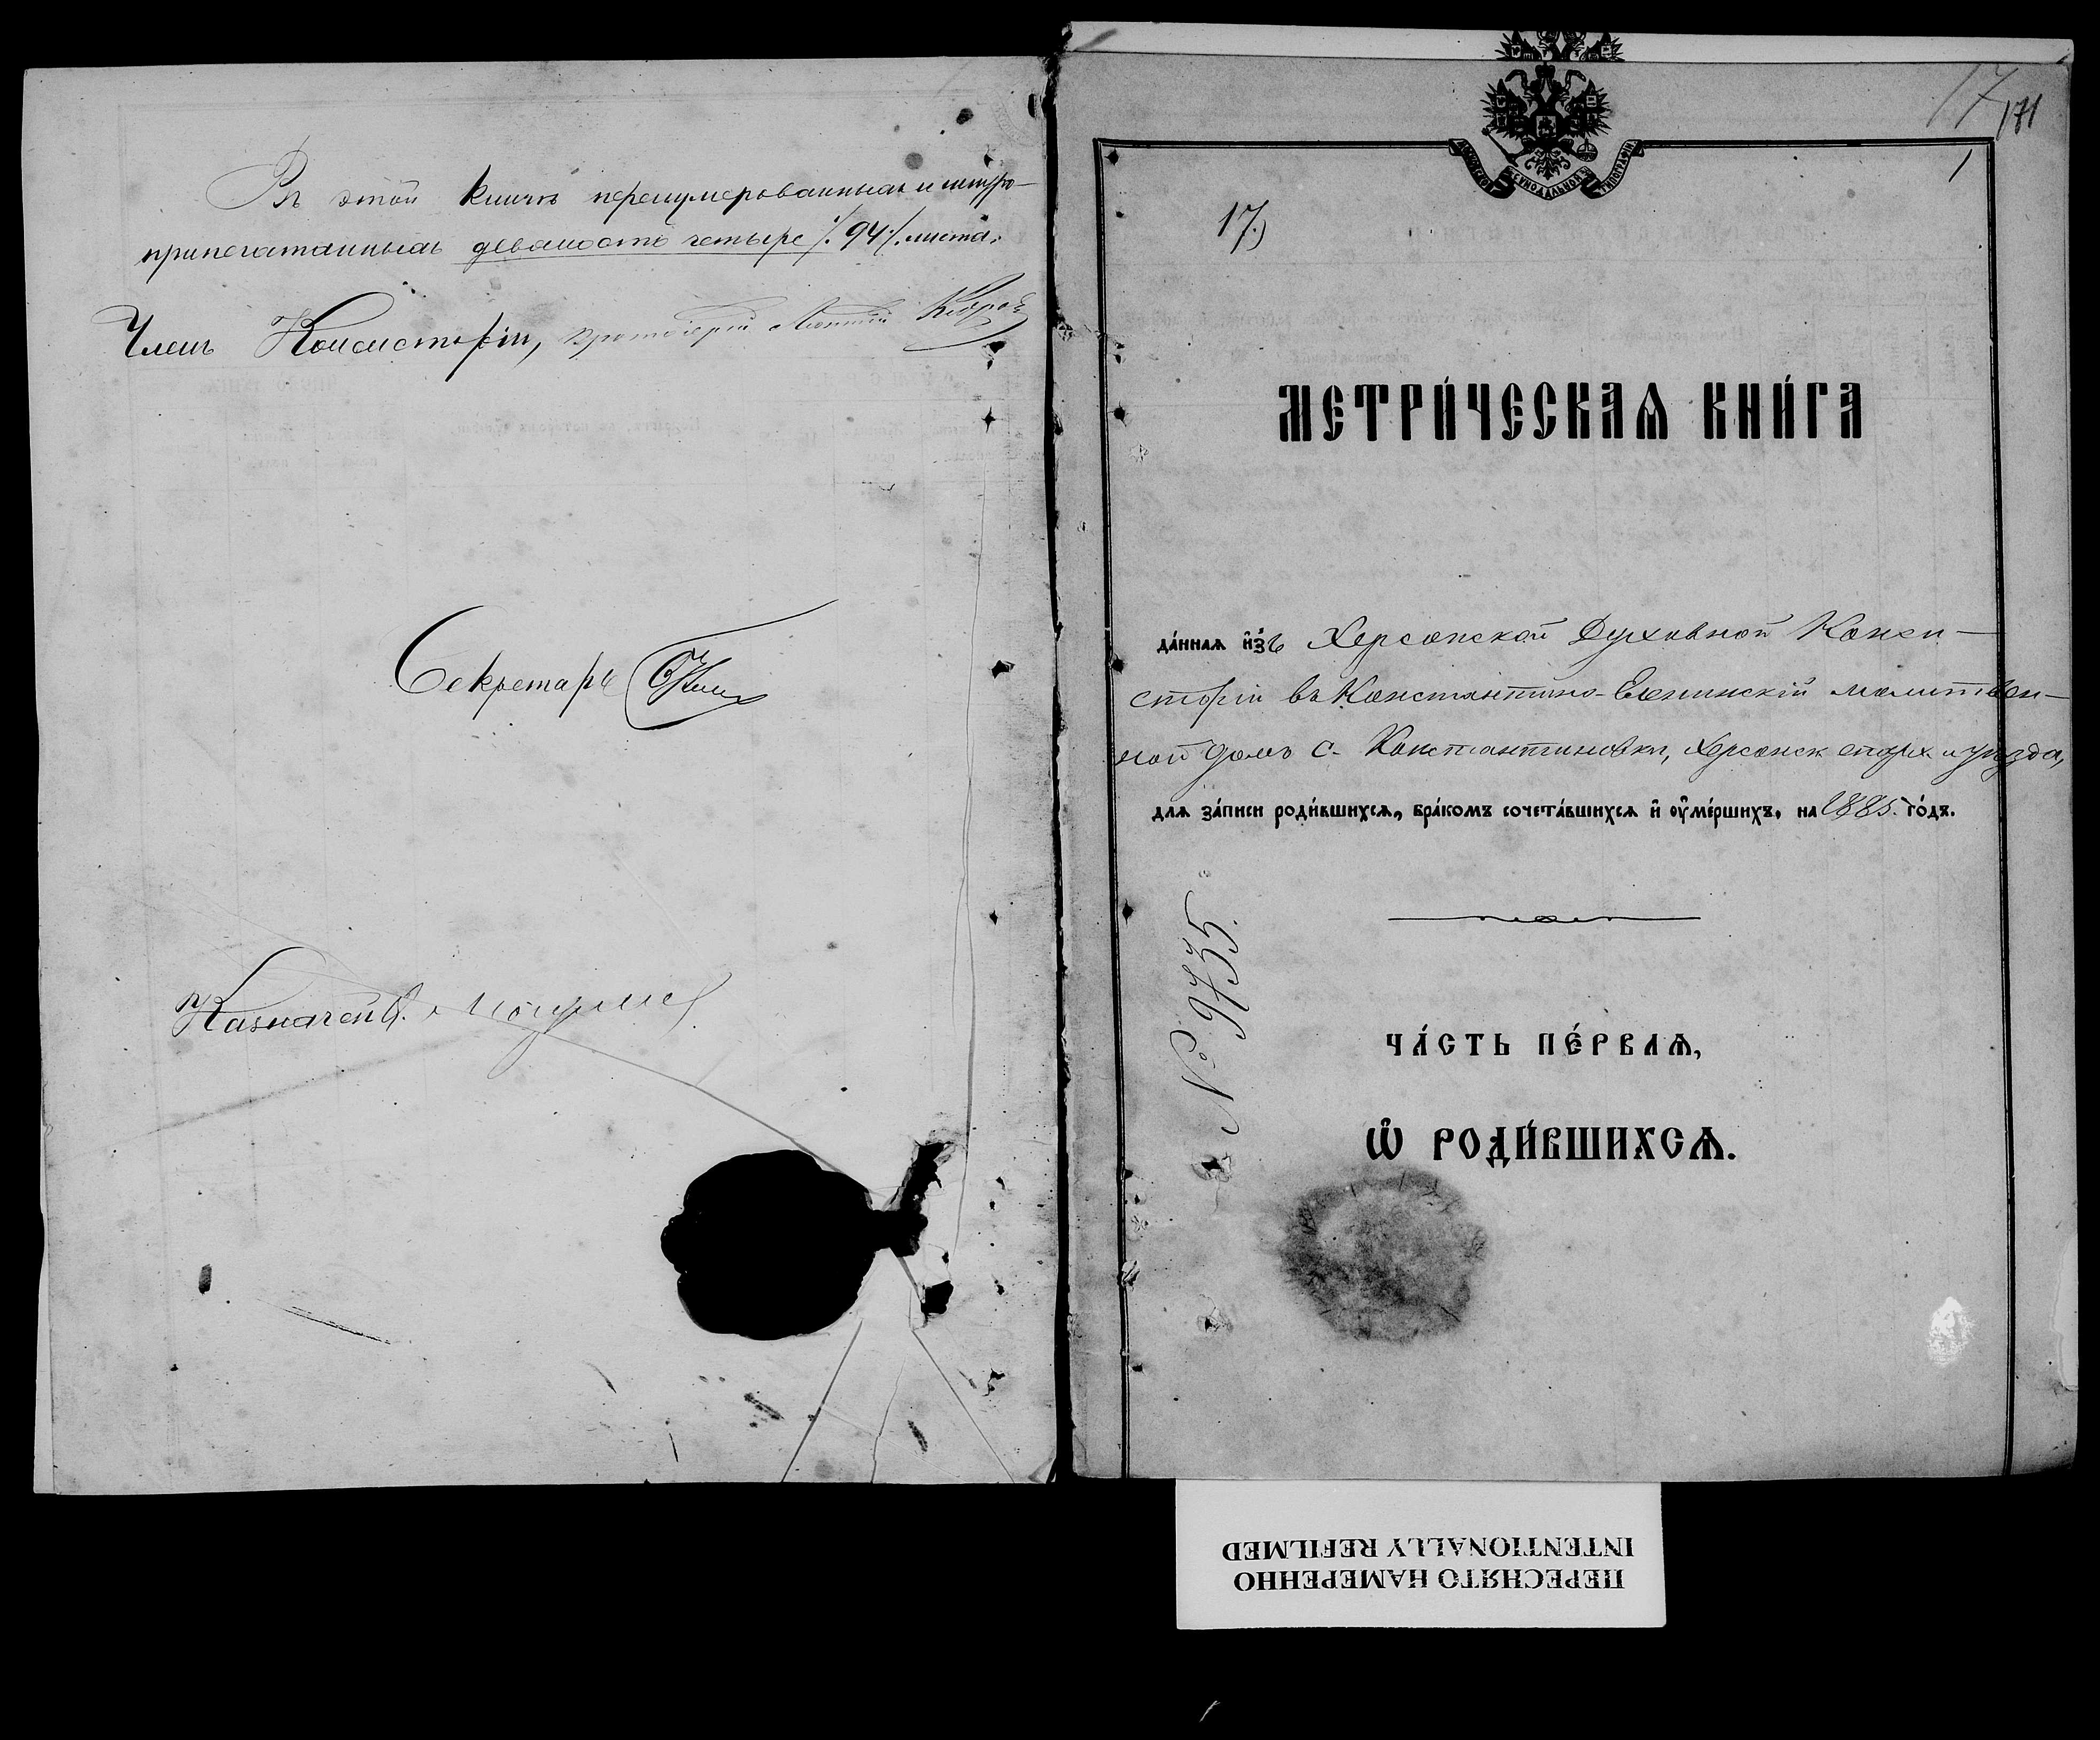 Въ этой книгѣ перенумерованныхъ и шнуро-
припечатанныхъ девяносто четыре /. 94 /. листа.
Членъ Консисторіи, протоіерей
Секретарь
Казначей
17 171
1
МОСКОВСКОЙ СѴНОДАЛЬНОЙ ТИПОГРАФІИ
17.)
МЕТРИ́ЧЕСКАѦ КНИ́ГА
да́ннаѧ и҆зъ Херсонской Духовной Конси-
сторіи въ Константино-Еленинскій молитвен-
ной домъ с. Константиновки, Херсонск епарх и уѣзда,
длѧ за́писи роди́вшихсѧ, бра́комъ сочета́вшихсѧ и҆ ᲂу҆ме́ршихъ, на 1885. го́дъ.
№ 9735.
ЧА́СТЬ ПЕ́РВАѦ,
Ѡ҆ РОДИ́ВШИХСѦ.
ПЕРЕСНЯТО НАМЕРЕННО
INTENTIONALLY REFILMED